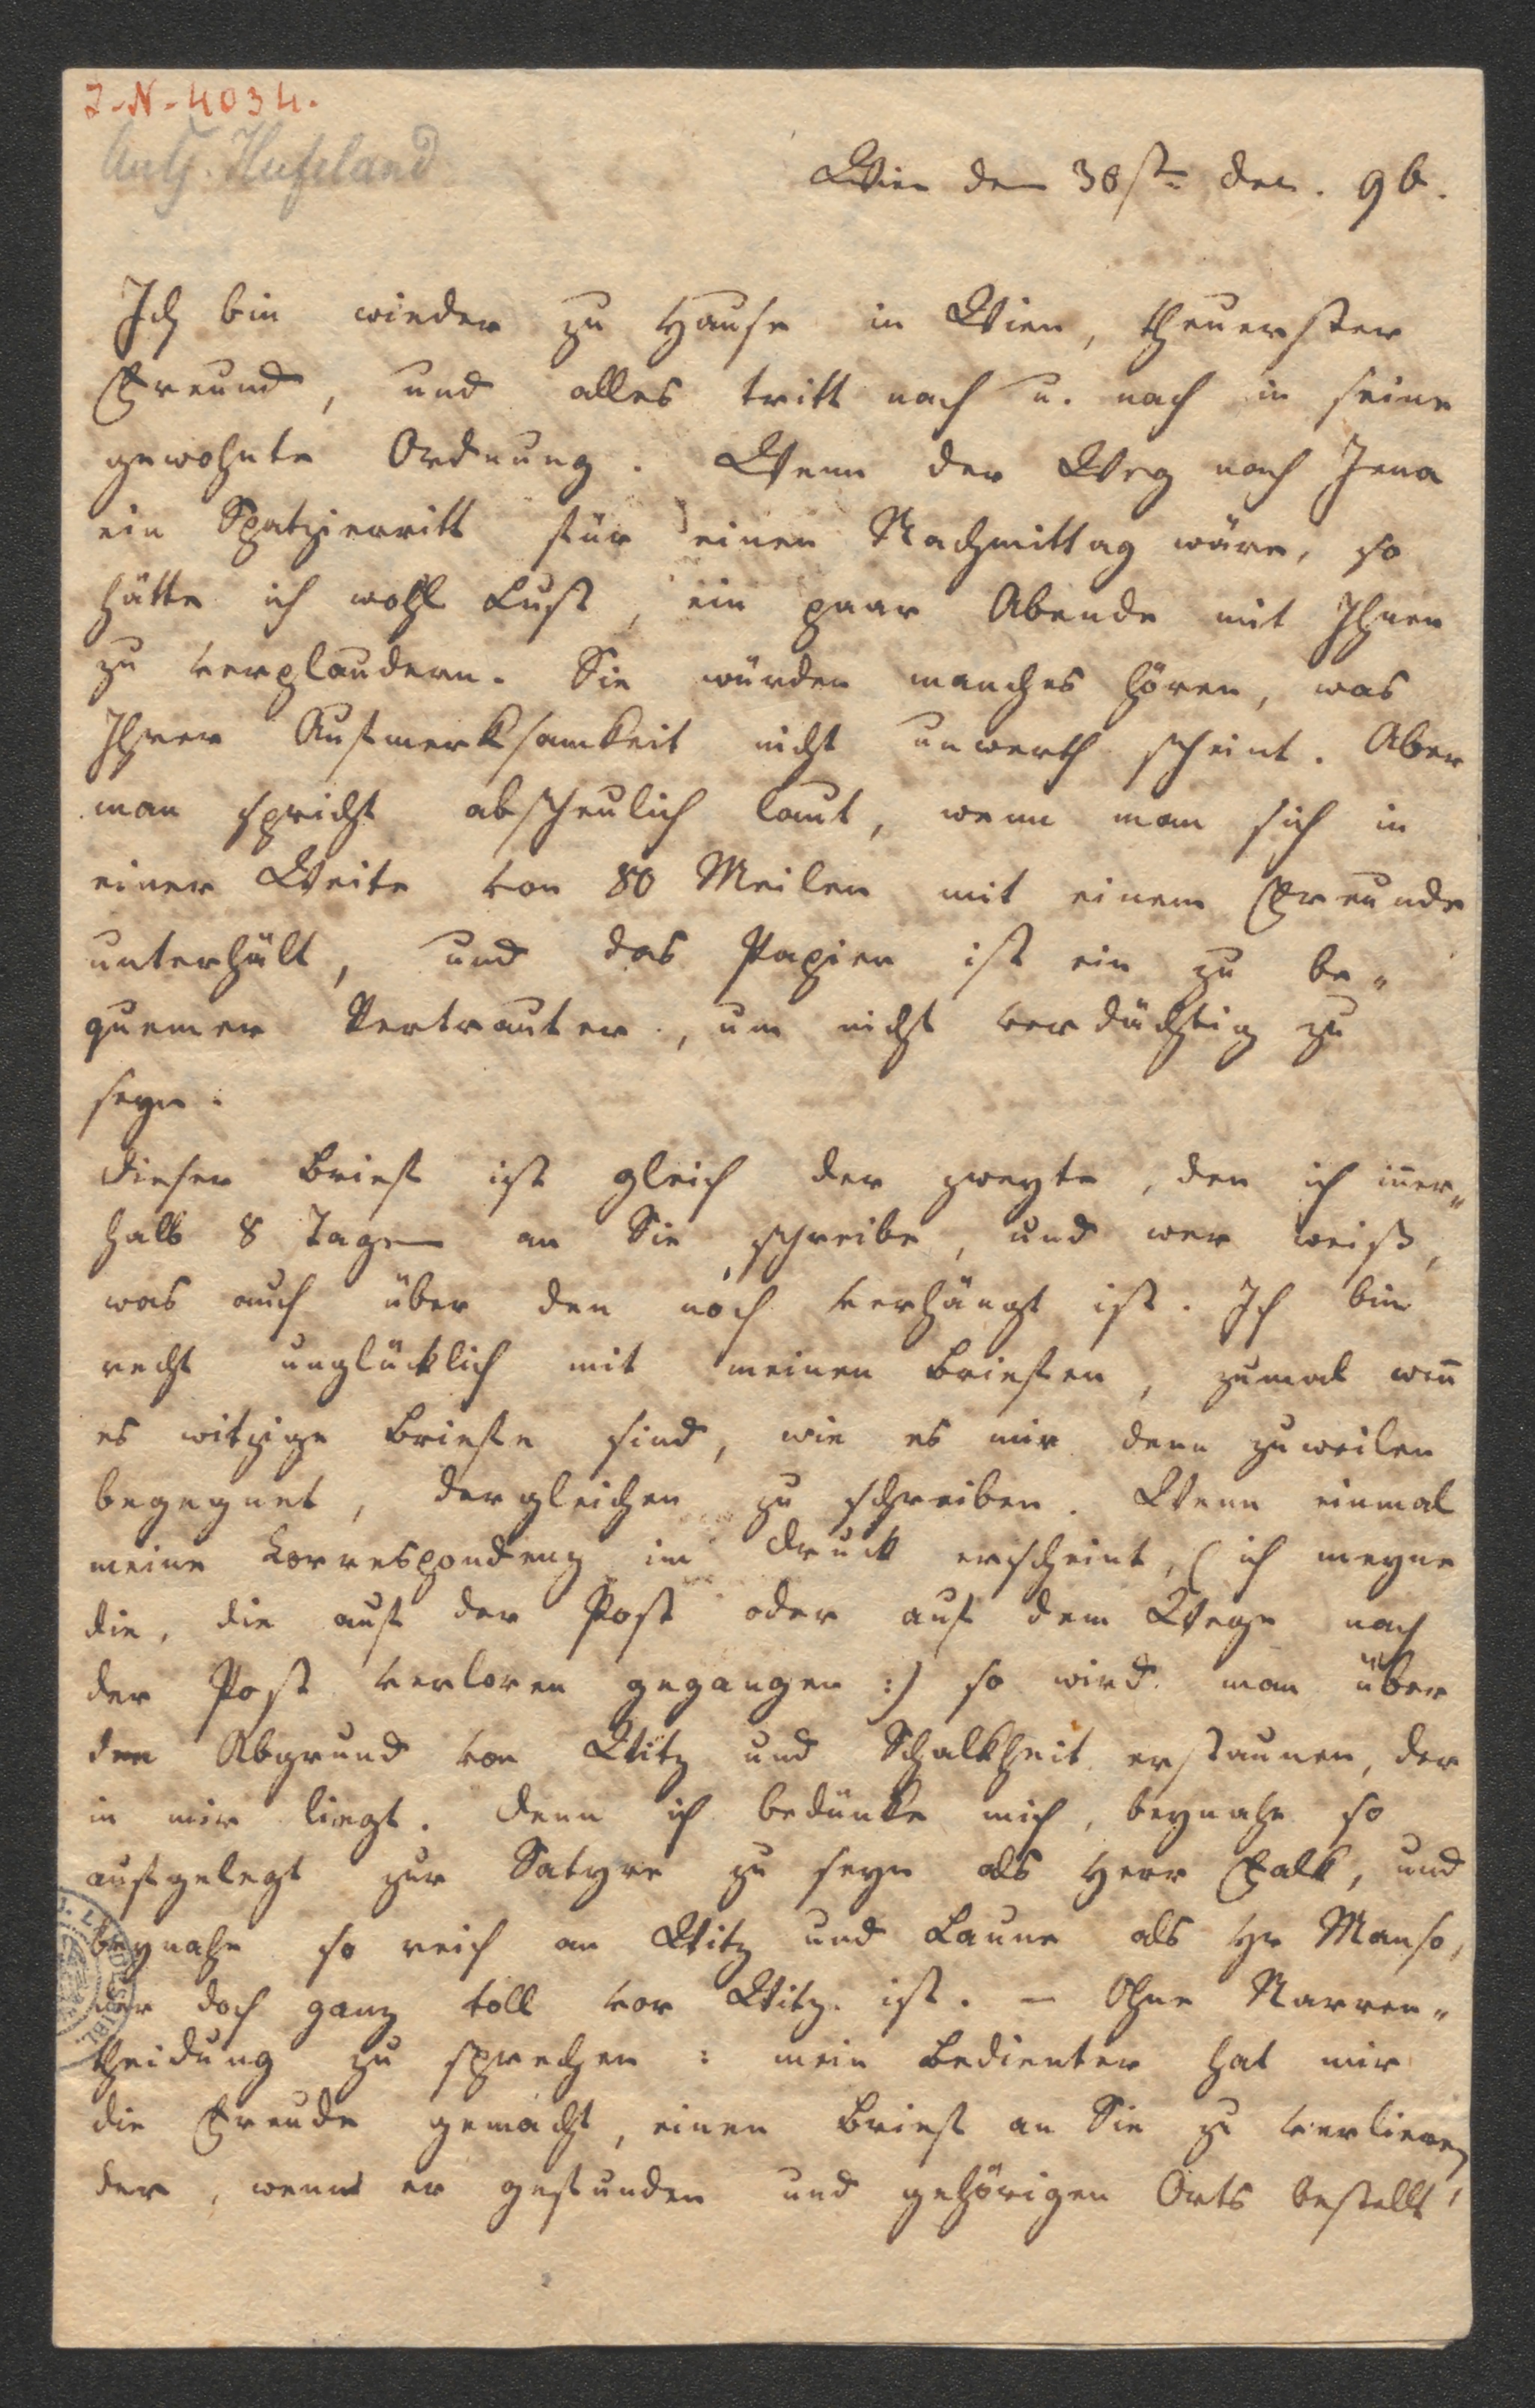 J-N-4034.
Antj. Hufeland
Wien den 30st= Dec. 96.
Ich bin wieder zu Hause in Wien, theuerster
Freund, und alles tritt nach u. nach in seine
gewohnte Ordnung. Wenn der Weg nach Jena
ein Spatzierritt für einen Nachmittag wäre, so
hätte ich wohl Lust, ein paar Abende mit Ihnen
zu verplaudern. Sie würden manches hören, was
Ihrer Aufmerksamkeit nicht unwerth scheint. Aber
man spricht abscheulich laut, wenn man sich in
einer Weite von 80 Meilen mit einem Freunde
unterhält, und das Papier ist ein zu be„
quemer Vertrauter, um nicht verdächtig zu
seyn.
Dieser Brief ist gleich der zweyte, den ich iñer„
halb 8 Tagen an Sie schreibe, und wer weiß,
was auch über den noch verhängt ist. Ich bin
recht unglücklich mit meinen Briefen, zumal weñ
es witzige Briefe sind, wie es mir denn zuweilen
begegnet, dergleichen zu schreiben. Wenn einmal
meine Correspondenz im Druck erscheint, (ich meyne
die, die auf der Post oder auf dem Wege nach
der Post verloren gegangen :) so wird man über
den Abgrund von Witz und Schalkheit erstaunen, der
in mir liegt. Denn ich bedünke mich, beynahe so
aufgelegt zur Satyre zu seyn als Herr Falk, und
beynahe so reich an Witz und Laune als Hr Manso,
der doch ganz toll vor Witz ist. – Ohne Narren„
theidung zu sprechen: mein Bedienter hat mir
die Freude gemacht, einen Brief an Sie zu verlieren,
der, wenn er gefunden und gehörigen Orts bestellt,